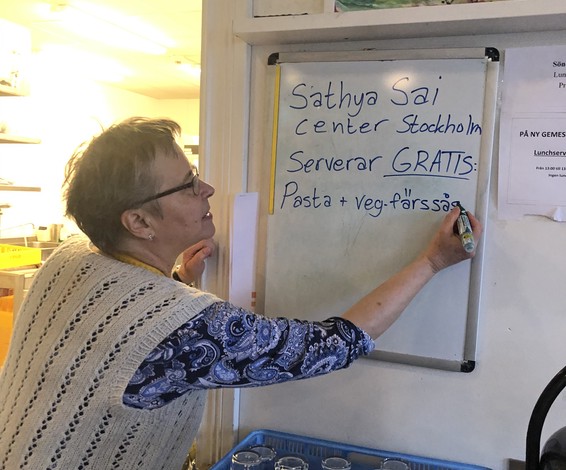 Sathya Sai
center Stockholm
Serverar GRATIS:
Pasta + veg-färssås
Sön
Lun
Pr
PÅ NY GEMES
Lunchserv
Från 13:00 till 15
Ingen lun